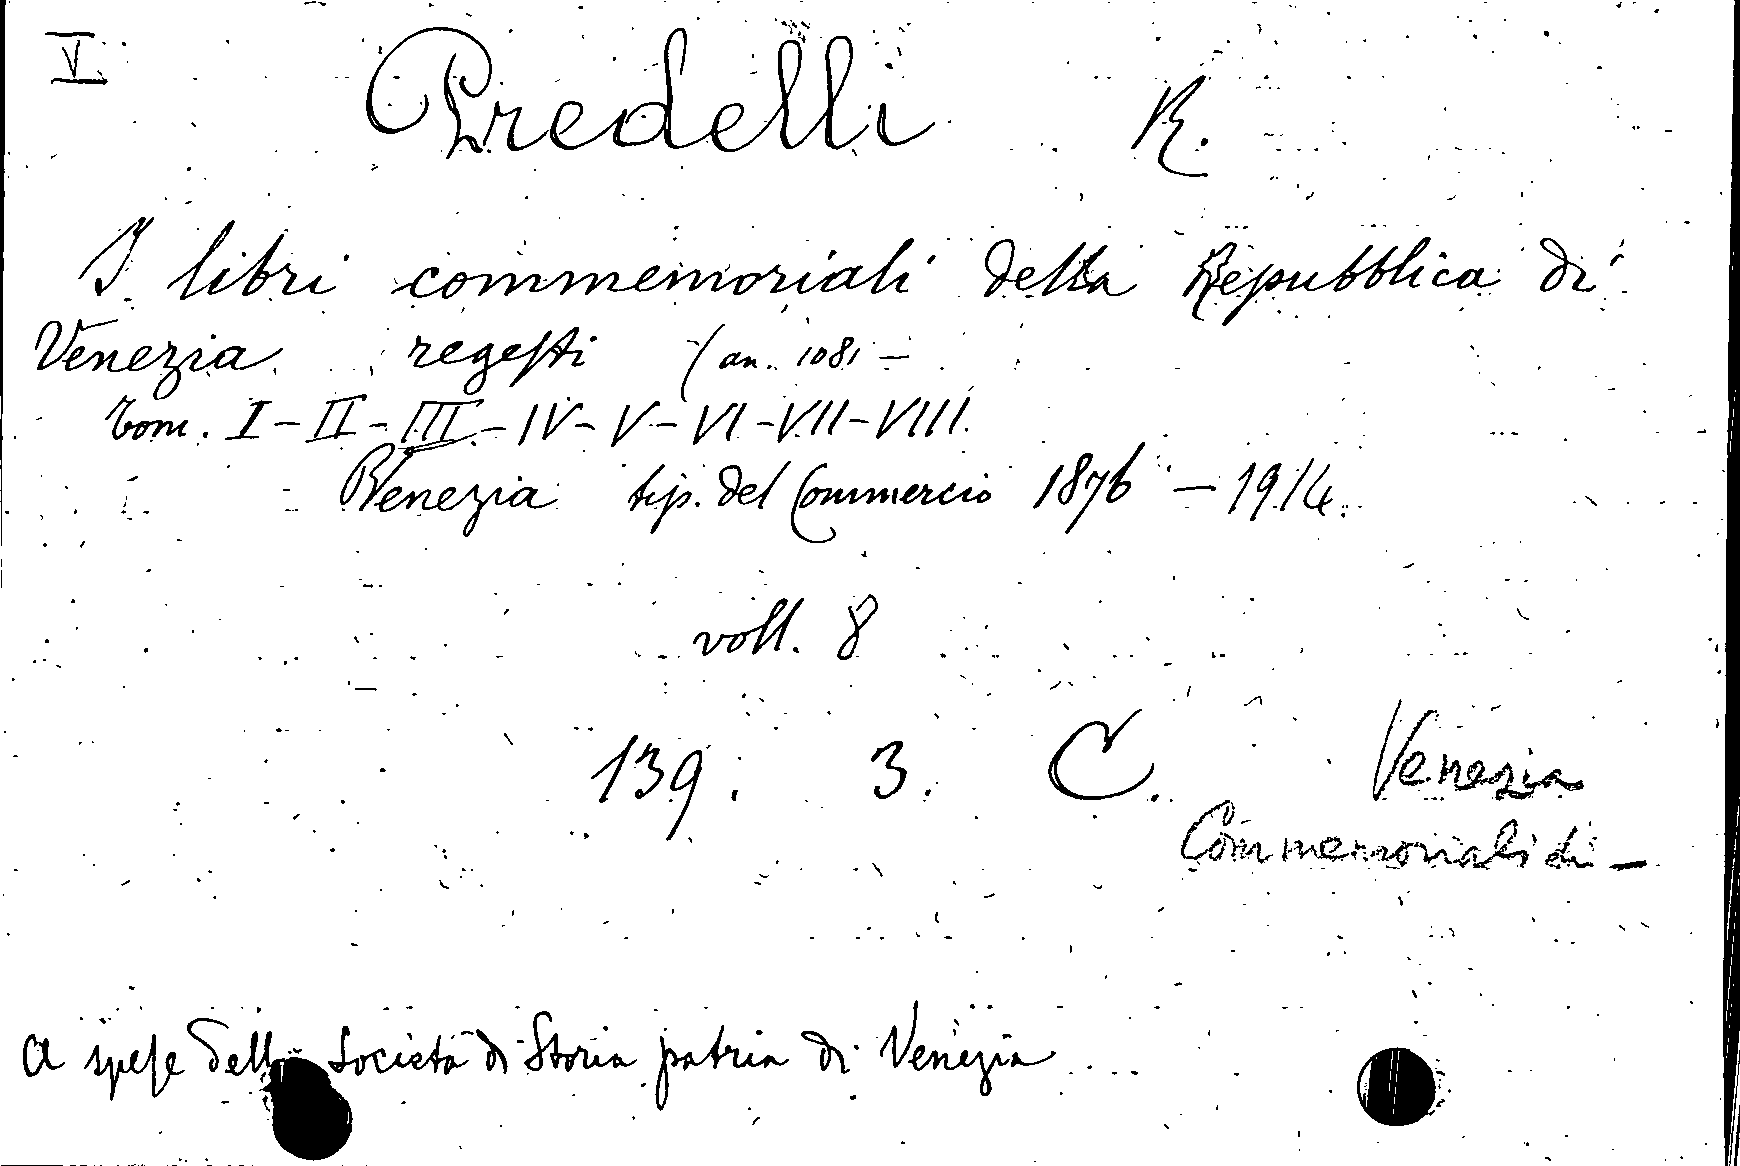 V
Predelli R.
I libri commemoriali della Repubblica di
Venezia regesti (an. 1081 –
tom. I – II – III – IV – V – VI – VII – VIII.
Venezia tip. del Commercio 1876 – 1914.
voll. 8
139. 3. C.
Venezia
Commemoriali di –
A spese della Società di Storia patria di Venezia